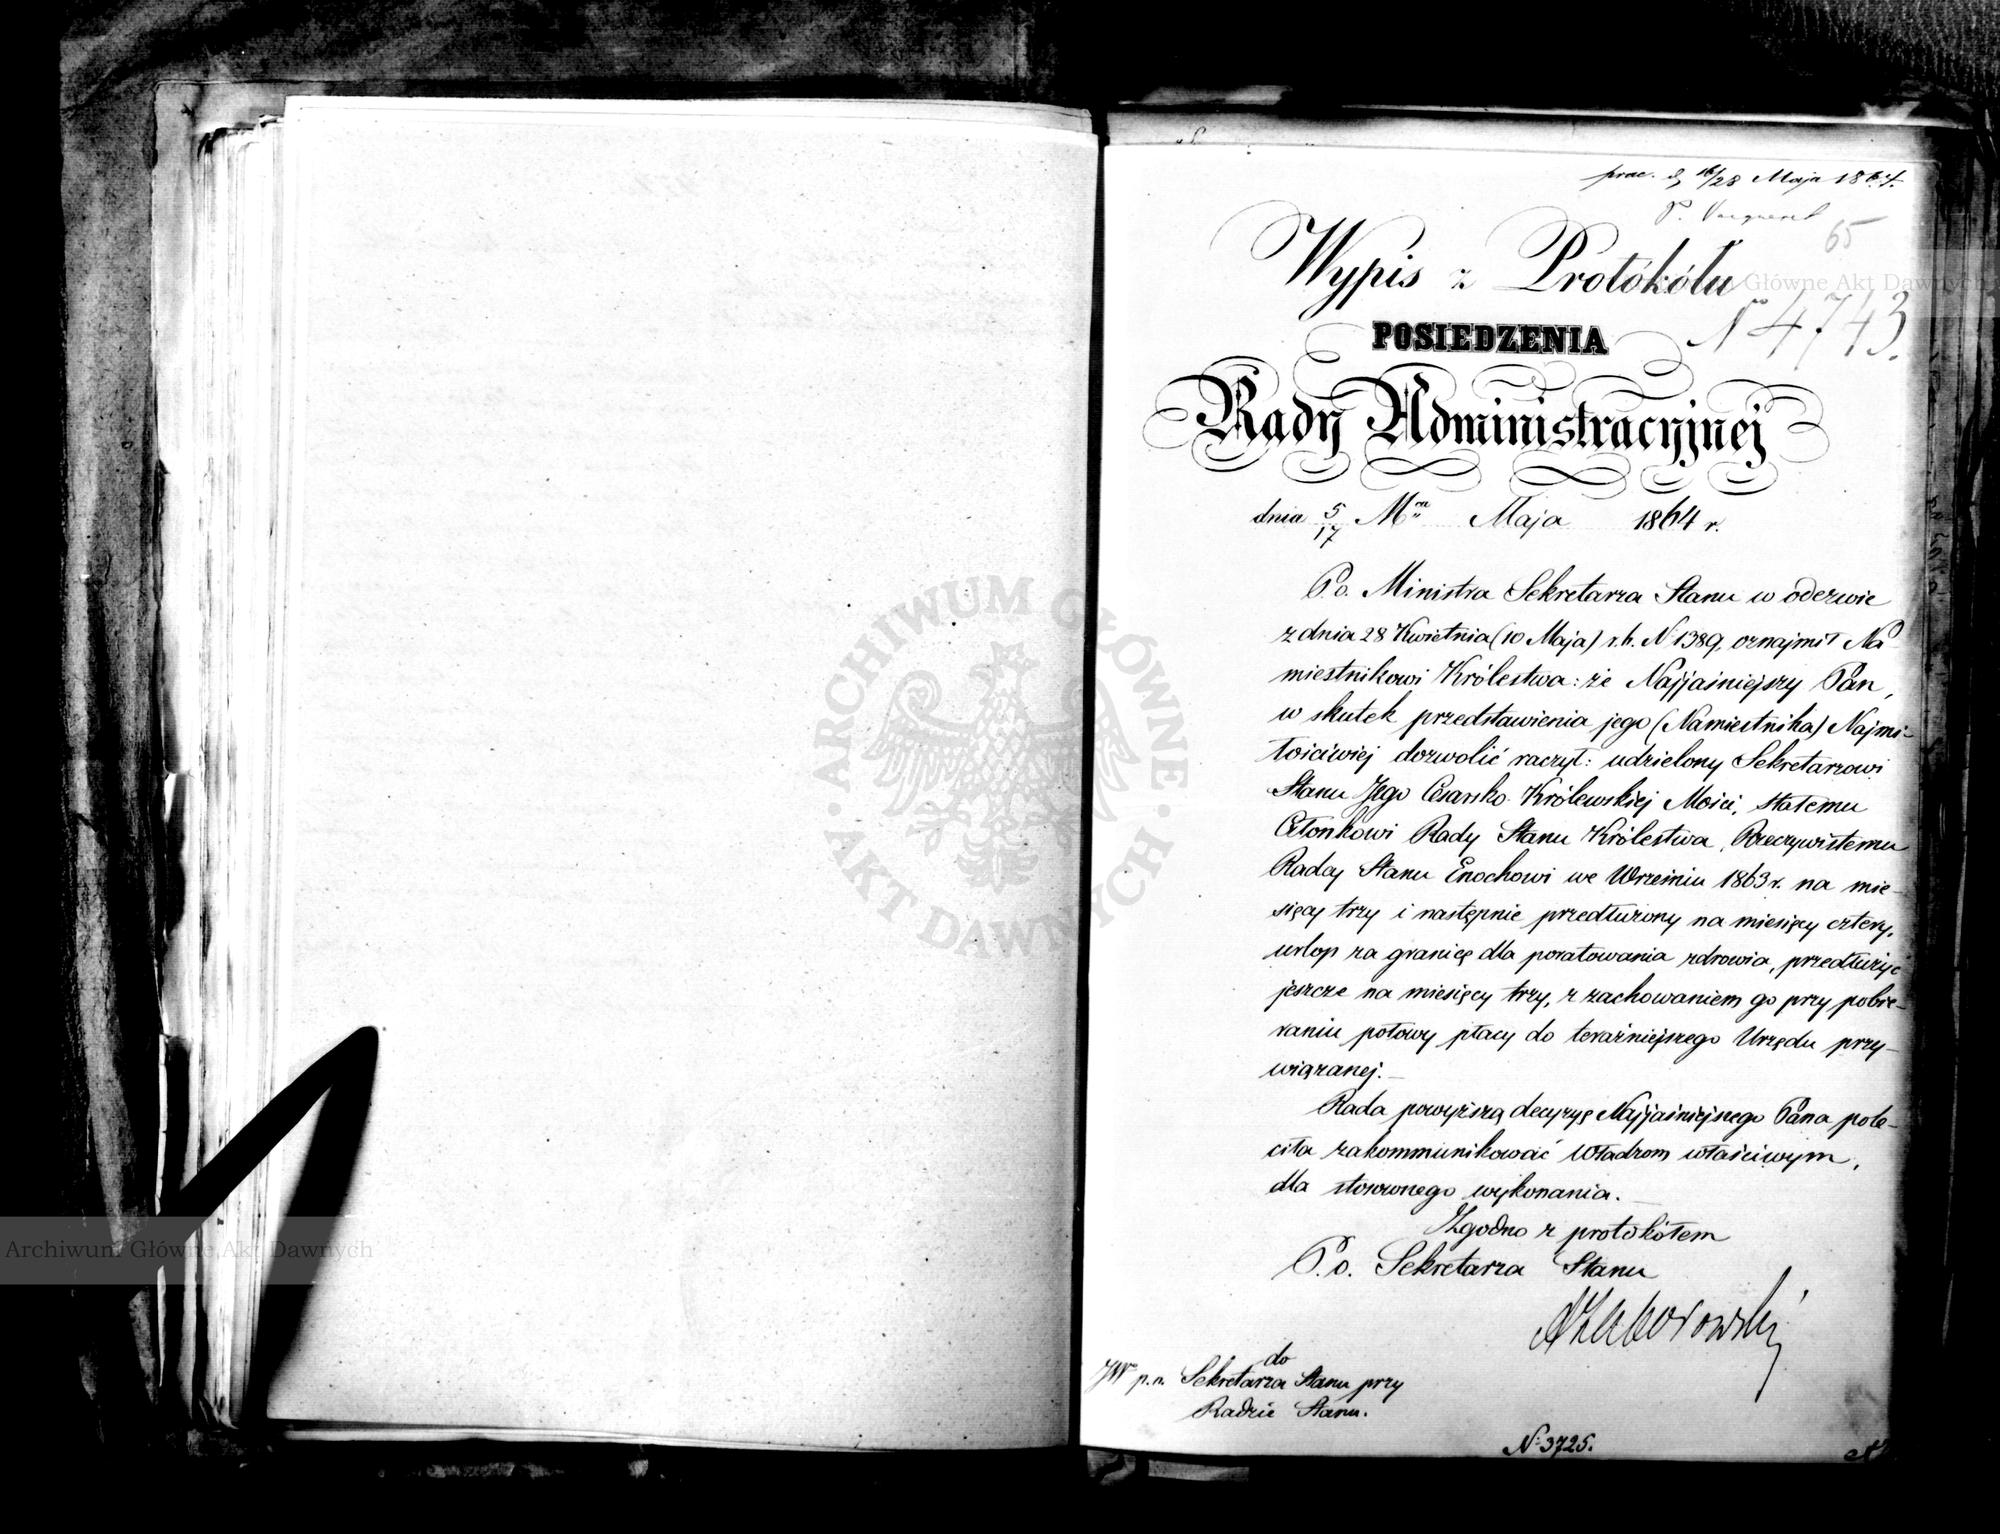 prac. d. 16/28 Maja 1864.
65
Wypis z Protokółu
Nº 4743.
POSIEDZENIA
Rady Administracyjnej
dnia 5/17 Mca Maja 1864 r.
P. o. Ministra Sekretarza Stanu w odezwie
z dnia 28 Kwietnia (10 Maja) r. b. Nº 1389, oznajmił Na-
miestnikowi Królestwa: że Najjaśniejszy Pan,
w skutek przedstawienia jego (Namiestnika) Najmi-
łościwiej dozwolić raczył: udzielony Sekretarzowi
Stanu Jego Cesarsko Królewskiej Mości, stałemu
Członkowi Rady Stanu Królestwa, Rzeczywistemu
Radcy Stanu Enochowi we Wrześniu 1863 r. na mie-
sięcy trzy i następnie przedłużony na miesięcy cztery,
urlop za granicę dla poratowania zdrowia, przedłużyć
jeszcze na miesięcy trzy, z zachowaniem go przy pobie-
raniu połowy płacy do teraźniejszego Urzędu przy-
wiązanej.—
Rada powyższą decyzyę Najjaśniejszego Pana pole-
ciła zakommunikować Władzom właściwym,
dla stosownego wykonania.—
Zgodno z protokółem
P. o. Sekretarza Stanu
AZaborowski
do
JWo p. o. Sekretarza Stanu przy
Radzie Stanu.
Nº 3725.
ARCHIWUM GŁÓWNE
AKT DAWNYCH
Główne Akt Dawnych
Archiwum Główne Akt Dawnych